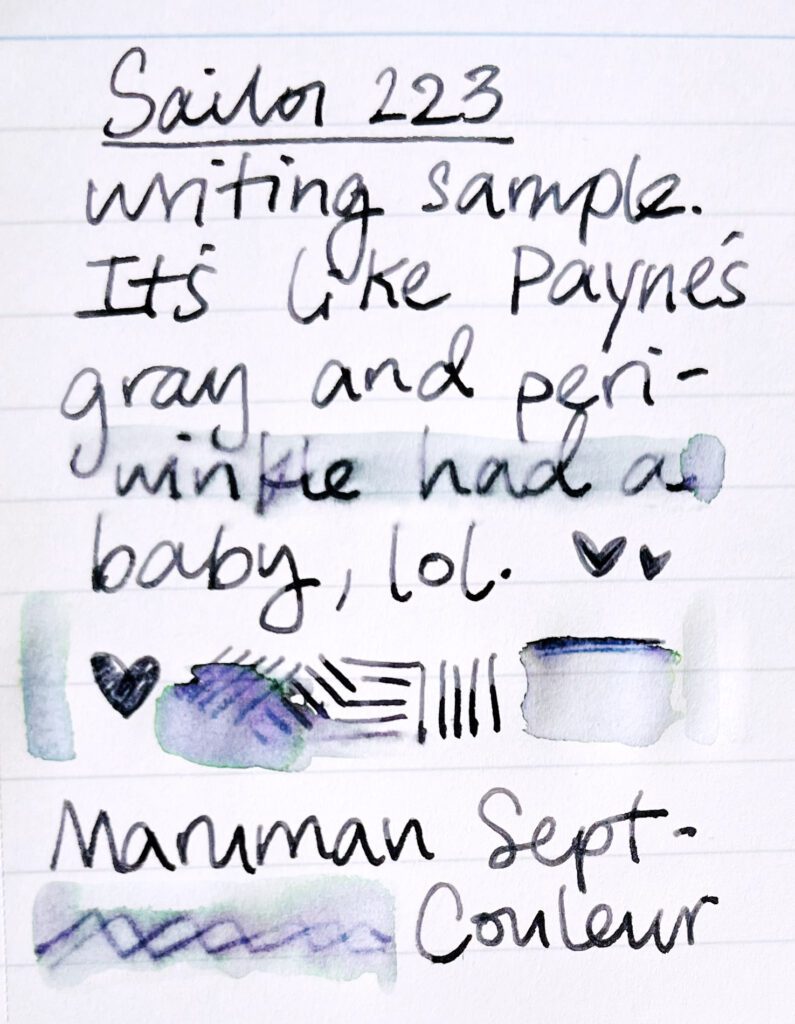 Sailor 223
writing sample.
It's like Payne's
gray and peri-
winkle had a
baby, lol.
Maruman Sept-
Couleur